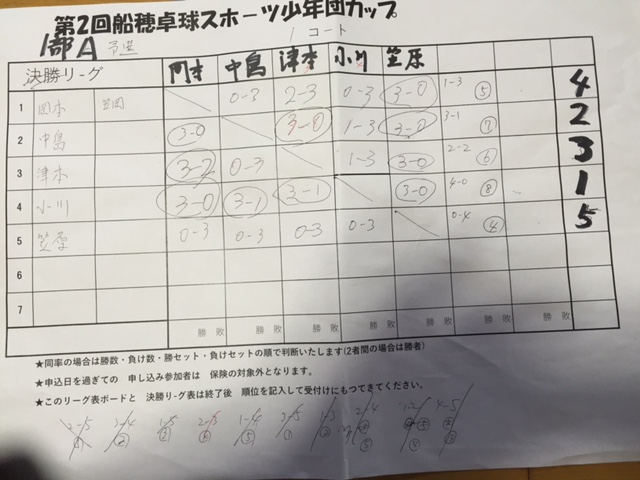 第2回船穂卓球スポーツ少年団カップ
1部A 予選 1 コート
決勝リーグ 岡本 中島 津本 小川 笠原
1 岡本 笠岡 0-3 2-3 0-3 3-0 1-3 ⑤ 4
2 中島 3-0 3-0 1-3 3-0 3-1 ⑦ 2
3 津本 3-2 0-3 1-3 3-0 2-2 ⑥ 3
4 小川 3-0 3-1 3-1 3-0 4-0 ⑧ 1
5 笠原 0-3 0-3 0-3 0-3 0-4 ④ 5
6
7
勝 敗 勝 敗 勝 敗 勝 敗 勝 敗 勝 敗 勝 敗
★同率の場合は勝数・負け数・勝セット・負けセットの順で判断いたします(2者間の場合は勝者)
★申込日を過ぎての 申し込み参加者は 保険の対象外となります。
★このリーグ表ボードと 決勝リ-グ表は終了後 順位を記入して受付けにもつてきてください。
2-5 3-4 1-5 2-3 1-4 3-5 1-3 2-4 1-2 4-5